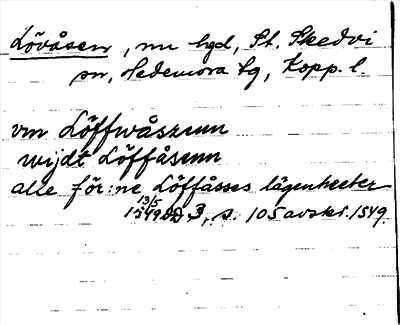 Lövåsen, nu hgd, St. Skedvi
sn, Hedemora tg, Kopp. l.
vm Löffwåszenn
wijdt Löffåsenn
alle för:ne Löffåsses lägenheeter
13/5 1549 DD 3, s. 105 avskr. 1549.